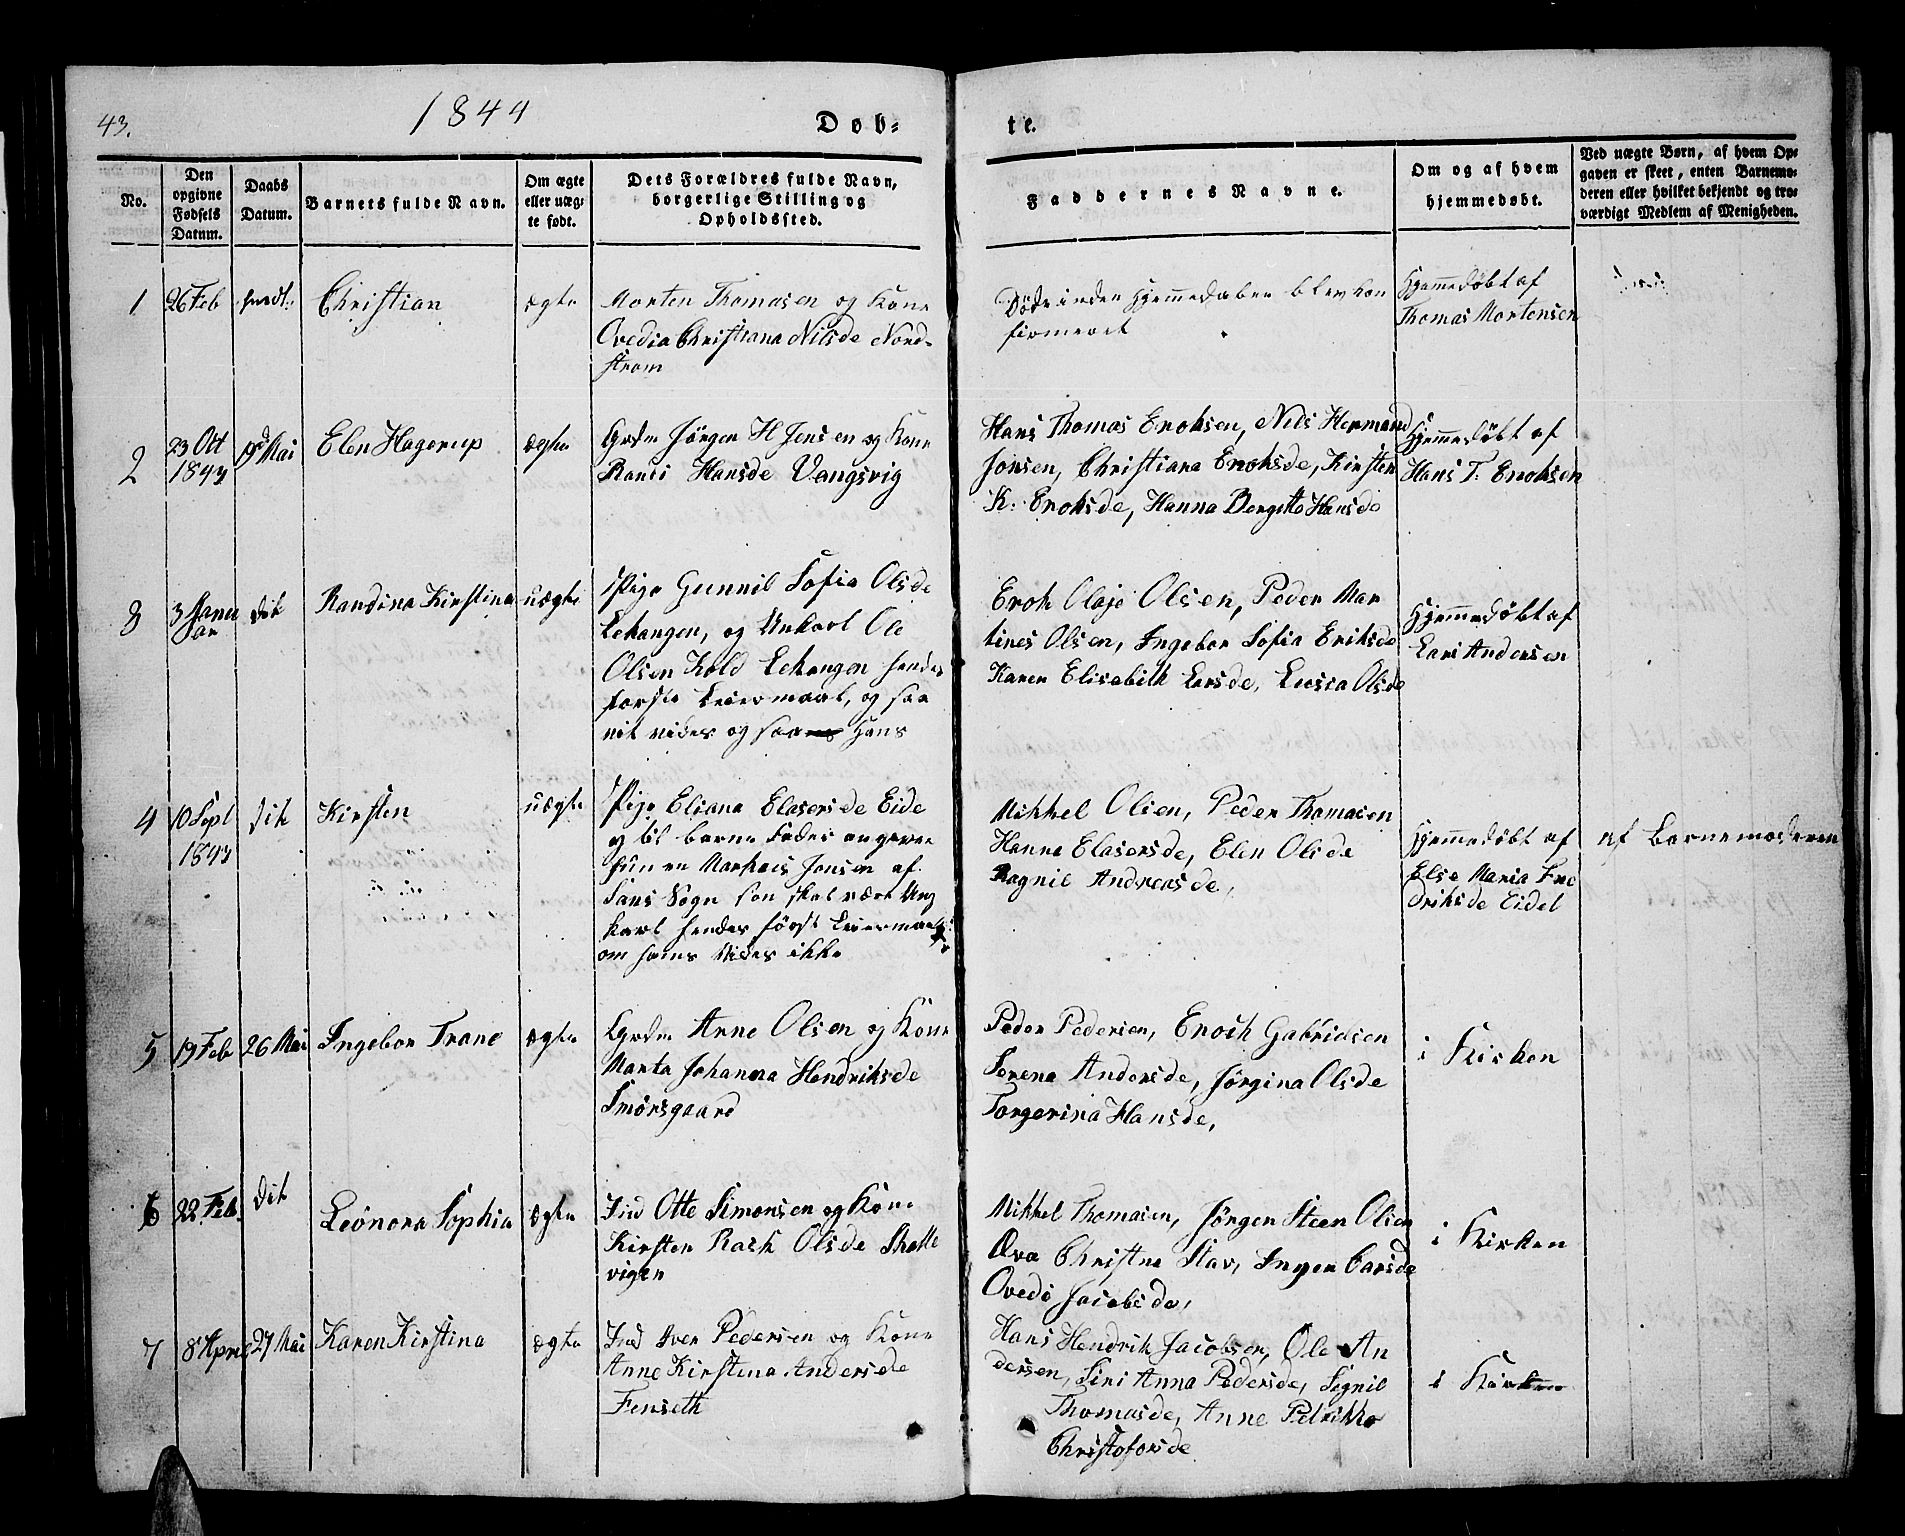 43.
1844
Døb-
te.
No.
Den opgivne Fødsels Datum.
Daabs Datum.
Barnets fulde Navn.
Om ægte eller uægte født.
Dets Forældres fulde Navn, borgerlige Stilling og Opholdssted.
Faddernes Navne.
Om og af hvem hjemmedøbt.
Ved uægte Børn, af hvem Opgaven er skeet, enten Barnemoderen eller hvilket bekjendt og troværdigt Medlem af Menigheden.
1
26 Feb
Christian
ægte
Morten Thomasen og Kone
Ovedia Christiana Nilsde Nord-
strøm
Døde inden Hjemmedaaben blev kon
firmeret
Hjemmedøbt af
Thomas Mortensen
2
23 Okt
1843
19 Mai
Elen Hagerup
ægte
Grdm Jörgen H Jensen og Kone
Randi Hansde Vangsvig
Hans Thomas Enoksen, Nils Hermand
Jonsen, Christiana Enoksde, Kirsten
K: Enoksde, Hanna Bergitte Hansde
Hjemmedøbt af
Hans T. Enoksen
3
3 Janu
ar
dit
Randina Kirstina
uægte
Pige Gunnil Sofia Olsde
Lekangen, og Unkarl Ole
Olsen Kold Lekangen hendes
første Leiermaal, og saa
vit vides og saa Hans
Enok Olaje Olsen, Peder Mar
tines Olsen, Ingebor Sofia Eriksde
Karen Elisabith Larsde, Lusia Olsde
Hjemmedøbt af
Lars Andersen
4
10 Sept
1843
dit
Kirsten
uægte
Pige Eliana Elasersde Eide
og til barne Fader angiver
hun en Markus Jonsen af
Sans Sogn som skal være Ung
karl hendes først Leiermaal
om hans Vides ikke
Mikkel Olsen, Peder Thomasen
Hanna Elasersde, Elen Olsde
Ragnil Andreasde,
Hjemmedøbt af
Else Maria Fre
driksde Eidet
af Barnemoderen
5
19 Feb
26 Mai
Ingebor Trane
ægte
Grdm Arne Olsen og Kone
Marta Johanna Hendriksde
Smörsgaard
Peder Pedersen, Enoch Gabrielsen
Serena Andersde, Jörgina Olsde
Torgerina Hansde,
i Kirken
6
22 Feb.
dit
Leönora Sophia
ægte
Ind Otte Simonsen og Kone
Kirsten Rask Olsde Skatt
vigen
Mikkel Thomasen, Jörgen Steen Olsen
Ova Christna Stav, Inger Larsde
Ovedi Jacobsde,
i Kirken
7
8 April
27 Mai
Karen Kirstina
ægte
Ind Iver Pedersen og Kone
Anne Kirstina Andersde
Finseth
Hans Hendrik Jacobsen, Ole An
dersen, Siri Anna Pedersde, Signil
Thomasde, Anne Petrikke
Christofersde
i Kirken